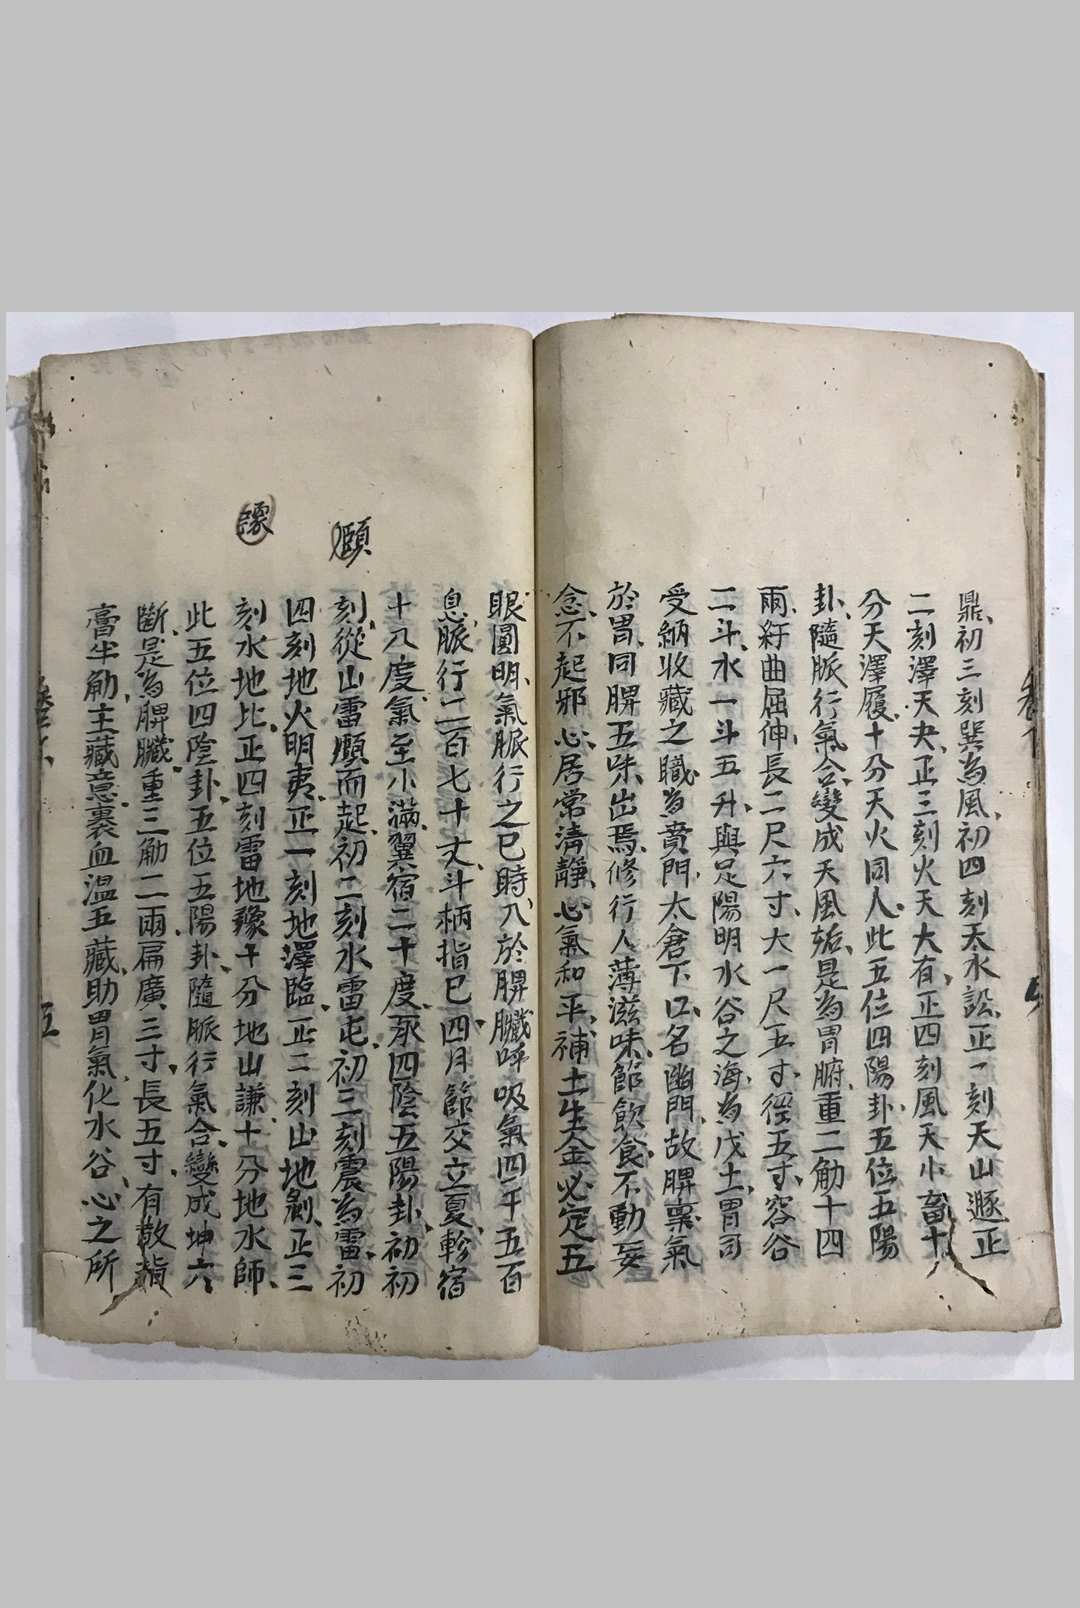 鼎、初三刻巽為風、初四刻天水訟、正一刻天山遯、正
二刻澤天夬、正三刻火天大有、正四刻風天小畜、十
分天澤履、十分天火同人、此五位四陽卦、五位五陽
卦、隨脈行氣合、變成天風姤、是為胃腑、重二觔十四
兩、紆曲屈伸、長二尺六寸、大一尺五寸、徑五寸、容谷
二斗、水一斗五升、與足陽明水谷之海、為戊土、胃司
受納收藏之職、為賁門、太倉下口、名幽門、故脾稟氣
於胃、同脾五味出焉、修行人薄滋味、節飲食、不動妄
念、不起邪心、居常清靜、心氣和平、補土生金、必定五
眼圓明、氣脈行之巳時、入於脾臟、呼吸氣四千五百
息、脈行二百七十丈、斗柄指巳、四月節交立夏、軫宿
十八度、氣至小滿、翼宿二十度、泵四陰五陽卦、初初
刻、從山雷頤而起、初二刻水雷屯、初三刻震為雷、初
四刻地火明夷、正一刻地澤臨、正二刻山地剝、正三
刻水地比、正四刻雷地豫、十分地山謙、十分地水師、
此五位四陰卦、五位五陽卦、隨脈行氣合、變成坤六
斷、是為脾臟、重三觔二兩、扁廣三寸、長五寸、有散
膏半觔、主藏意、裹血溫五藏、助胃氣、化水谷、心之所
頤
豫